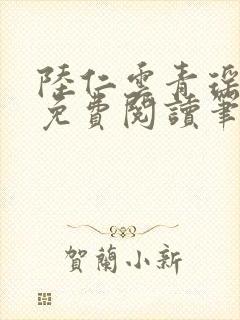 陸仁雲青瑤
免費閱讀筆
賀蘭小新